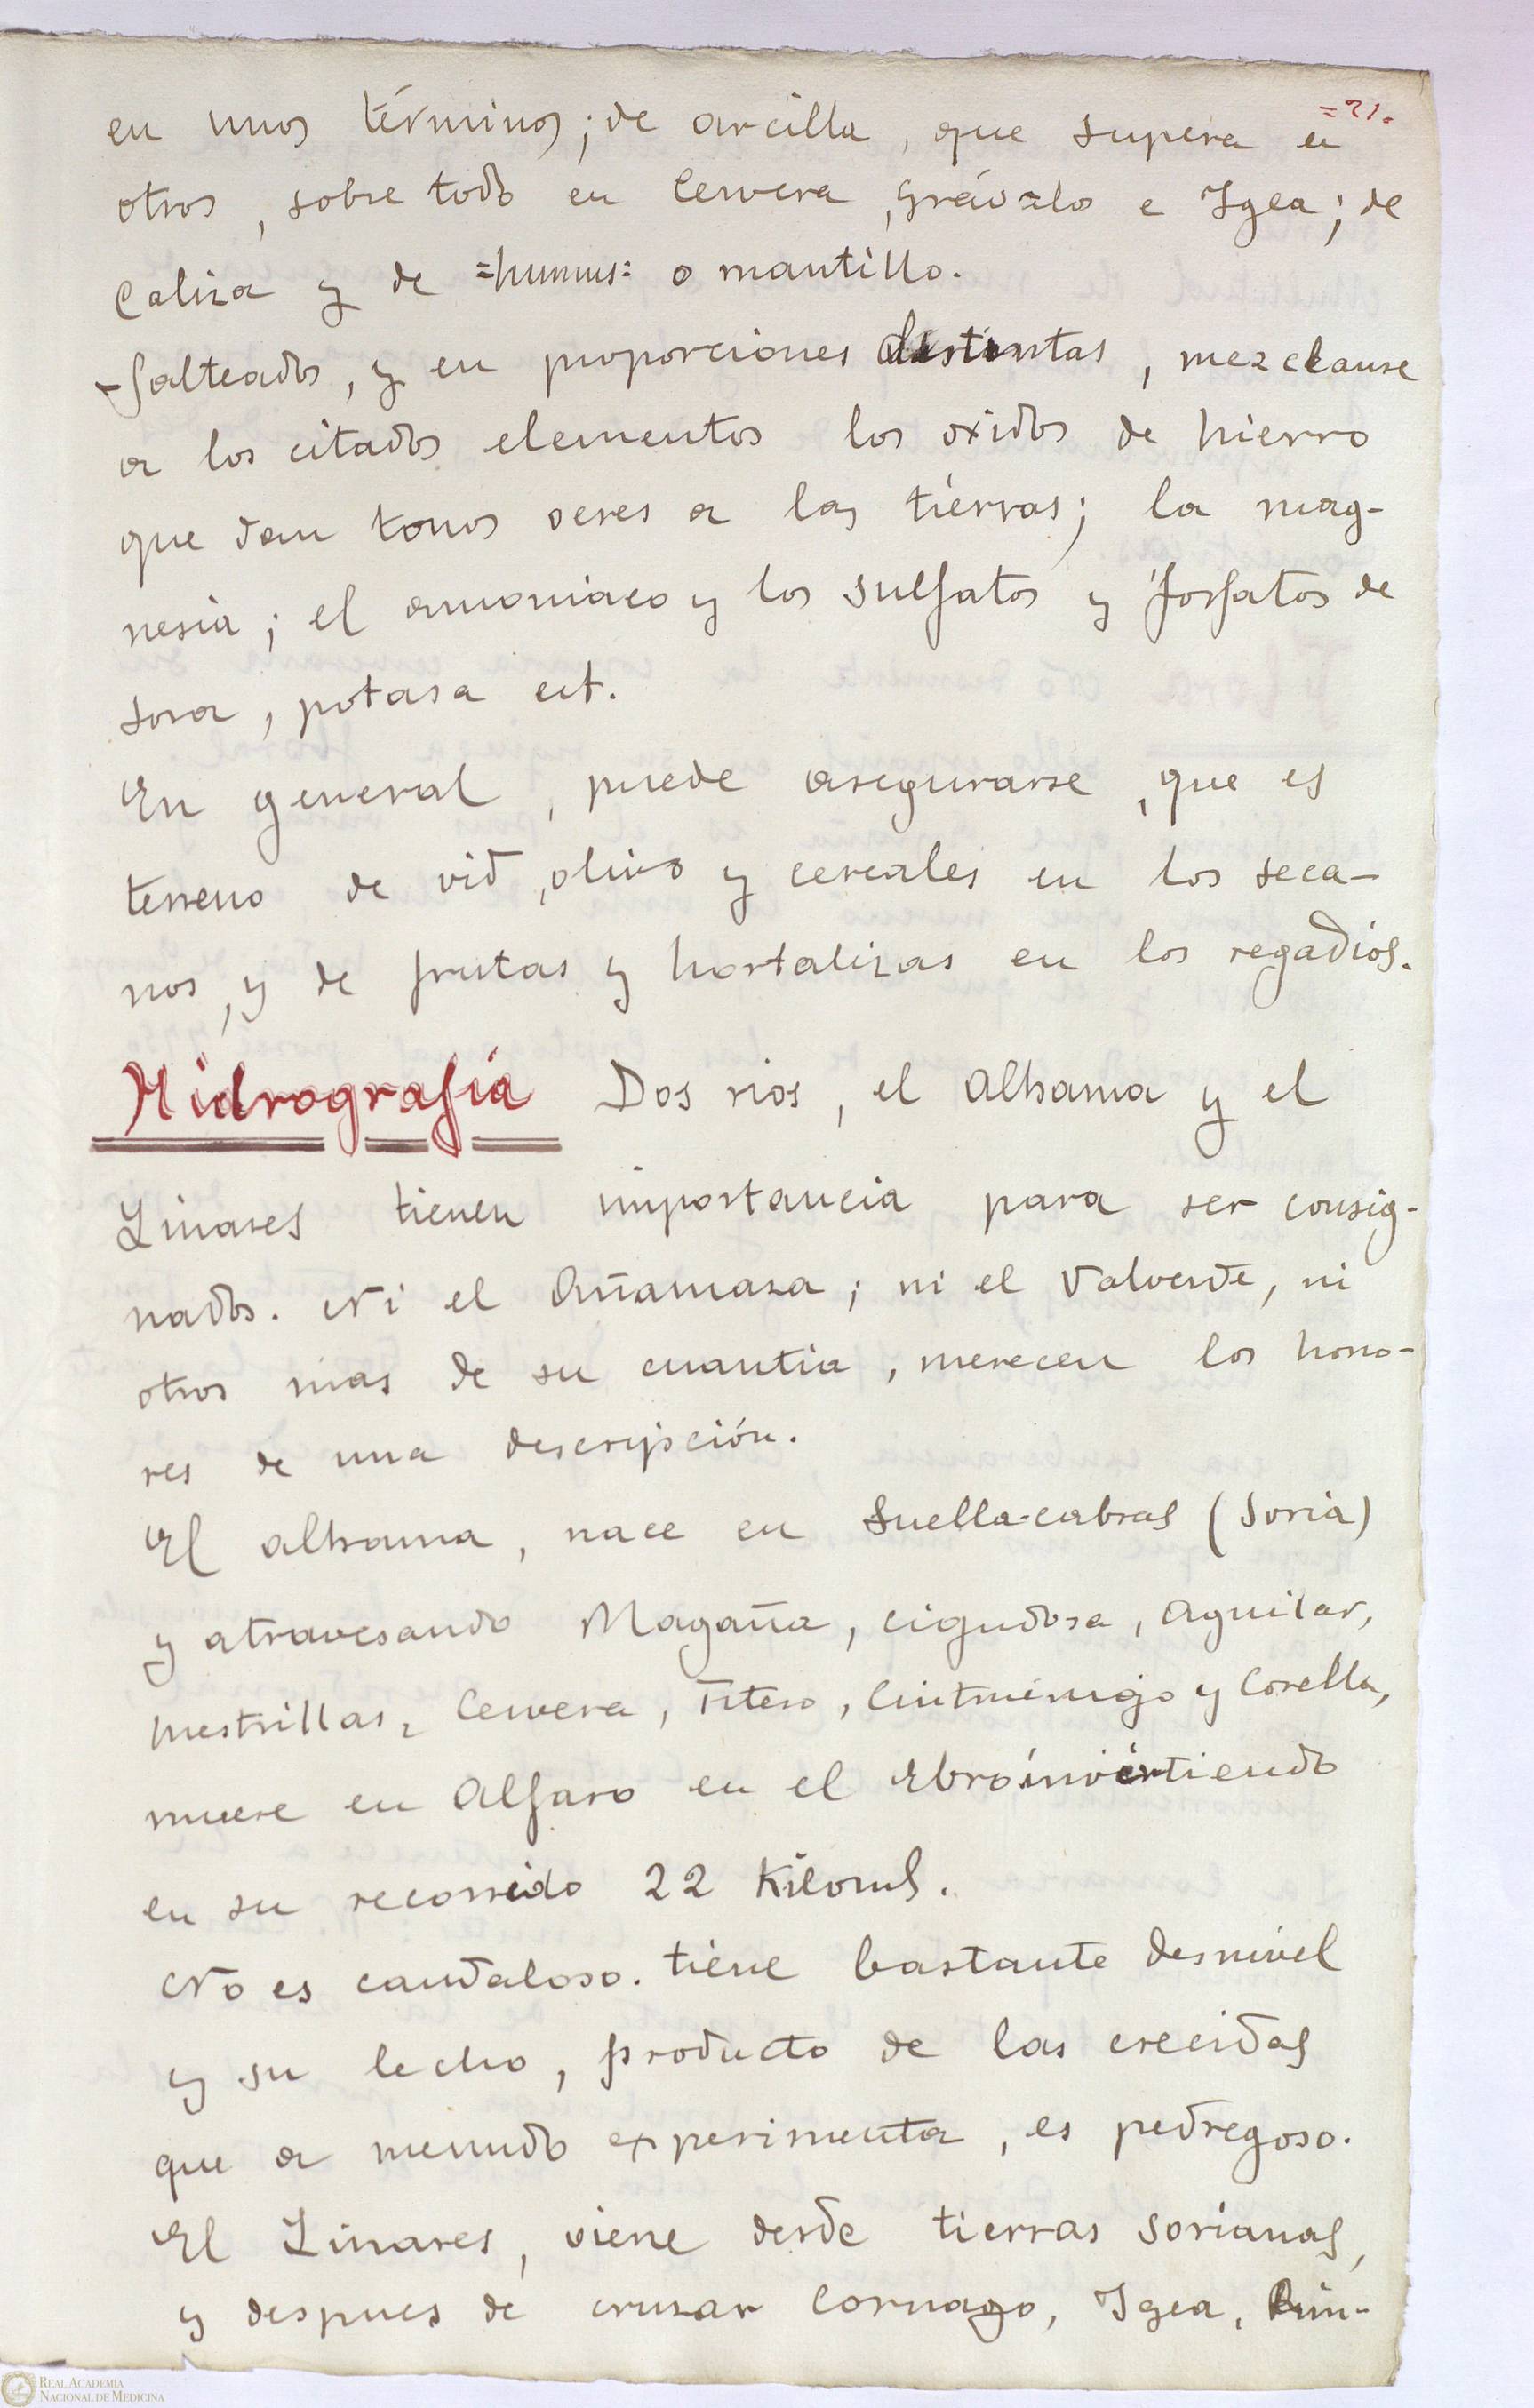 =21.
en unos términos; de arcilla, que supera en
otros, sobre todo en Cervera, Grávalo e Igea; de
Caliza y de =humus= o mantillo.
Salteados, y en proporciones distintas, mezclanse
a los citados elementos los oxidos de hierro
que dan tonos veres a las tierras; la mag-
nesia; el amoniaco y los sulfatos y fosfatos de
sosa, potasa ect.
En general, puede asegurarse, que es
terreno de vid, olivo y cereales en los seca-
nos, y de frutas y hortalizas en los regadios.
Hidrografia Dos rios, el Alhama y el
Linares tienen importancia para ser consig-
nados. Ni el Añamaza; ni el Valverde, ni
otros mas de su cuantia, merecen los hono-
res de una descripción.
El alhama, nace en Suella-cabras (Soria)
y atravesando Magaña, Cigudosa, Aguilar,
Inestrillas, Cervera, Fitero, Cintruenigo y Corella,
muere en Alfaro en el Ebro invirtiendo
en su recorrido 22 Kiloms.
No es caudaloso. tiene bastante desnivel
y su lecho, producto de las crecidas
que a menudo experimenta, es pedregoso.
El Linares, viene desde tierras sorianas,
y despues de cruzar Cornago, Igea, Rin-
REAL ACADEMIA
NACIONAL DE MEDICINA